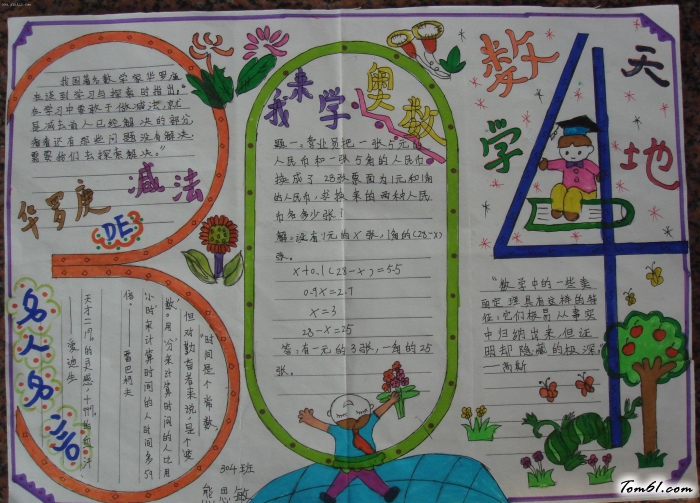 我国著名数学家华罗庚
在谈到学习与探索时指出："
在学习中要敢于做减法,就
是减去前人已经解决的部分,
看看还有那些问题没有解决,
需要我们去探索解决。"
华罗庚
DE
减法
我来学奥数
题一:营业员把一张5元的
人民币和一张5角的人民币
换成了28张票面为1元和1角
的人民币,求换来的两种人民
币各多少张!
解:设有1元的x张,1角的(28-x)
张。
x+0.1(28-x)=5.5
0.9x=2.7
x=3
28-x=25
答:有一元的3张,一角的25
张。
数学天地
"数学中的一些美
丽定理具有这样的特
征:它们极易从事实
中归纳出来,但证
明却隐藏的极深。"
——高斯
名人名言
"时间是个常数,
但对勤奋者来说,是个'变
数'。用'分'来计算时间的人比用
'小时'来计算时间的人时间多59
倍。
——雷巴柯夫
天才=1%的灵感,+99%的血汗。
——爱迪生
304班
熊思敏
Tom61.com